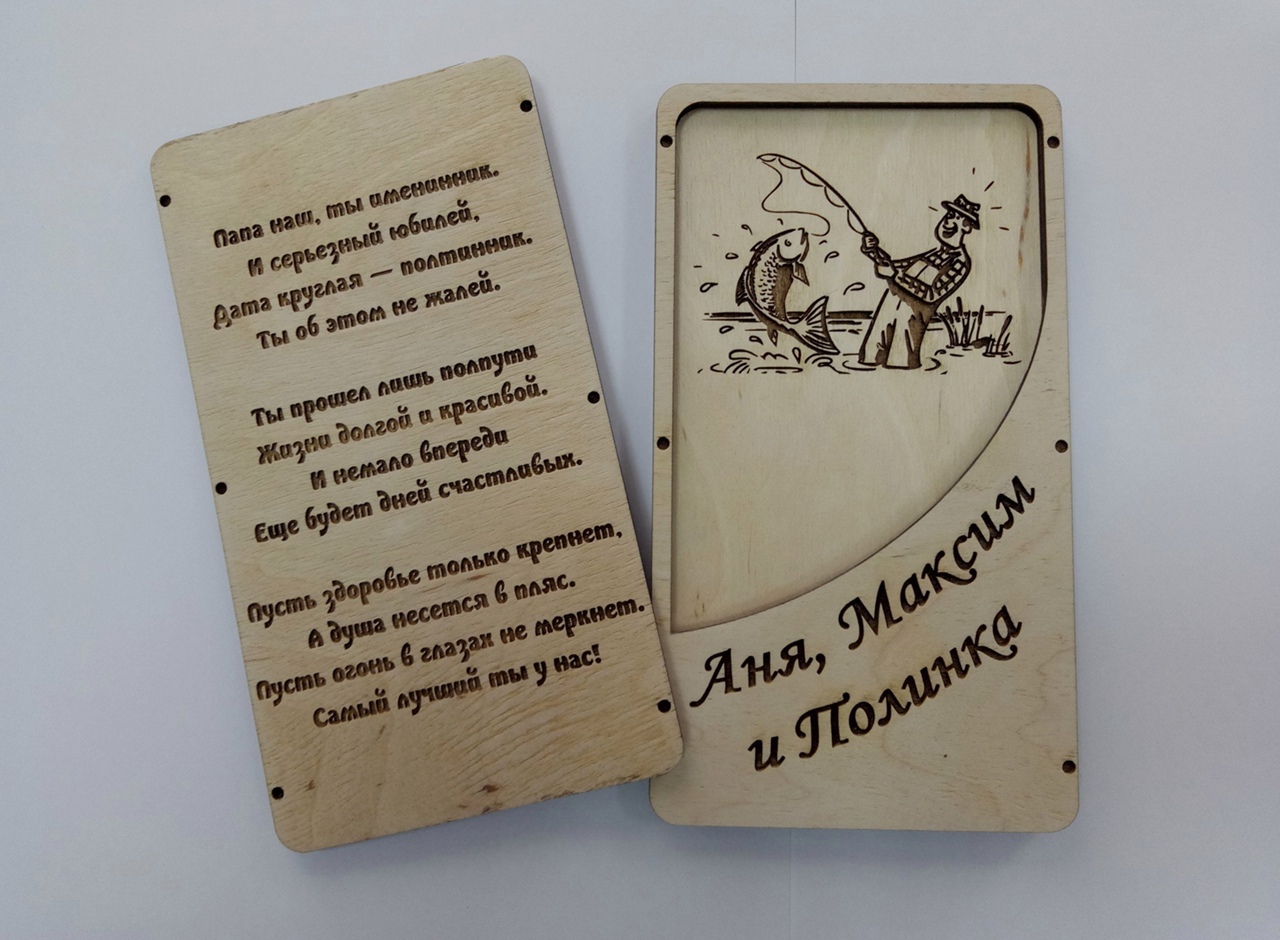 Папа наш, ты именинник.
И серьезный юбилей,
Дата круглая — полтинник.
Ты об этом не жалей.
Ты прошел лишь полпути
Жизни долгой и красивой.
И немало впереди
Еще будет дней счастливых.
Пусть здоровье только крепнет,
А душа несется в пляс.
Пусть огонь в глазах не меркнет.
Самый лучший ты у нас!
Аня, Максим
и Полинка